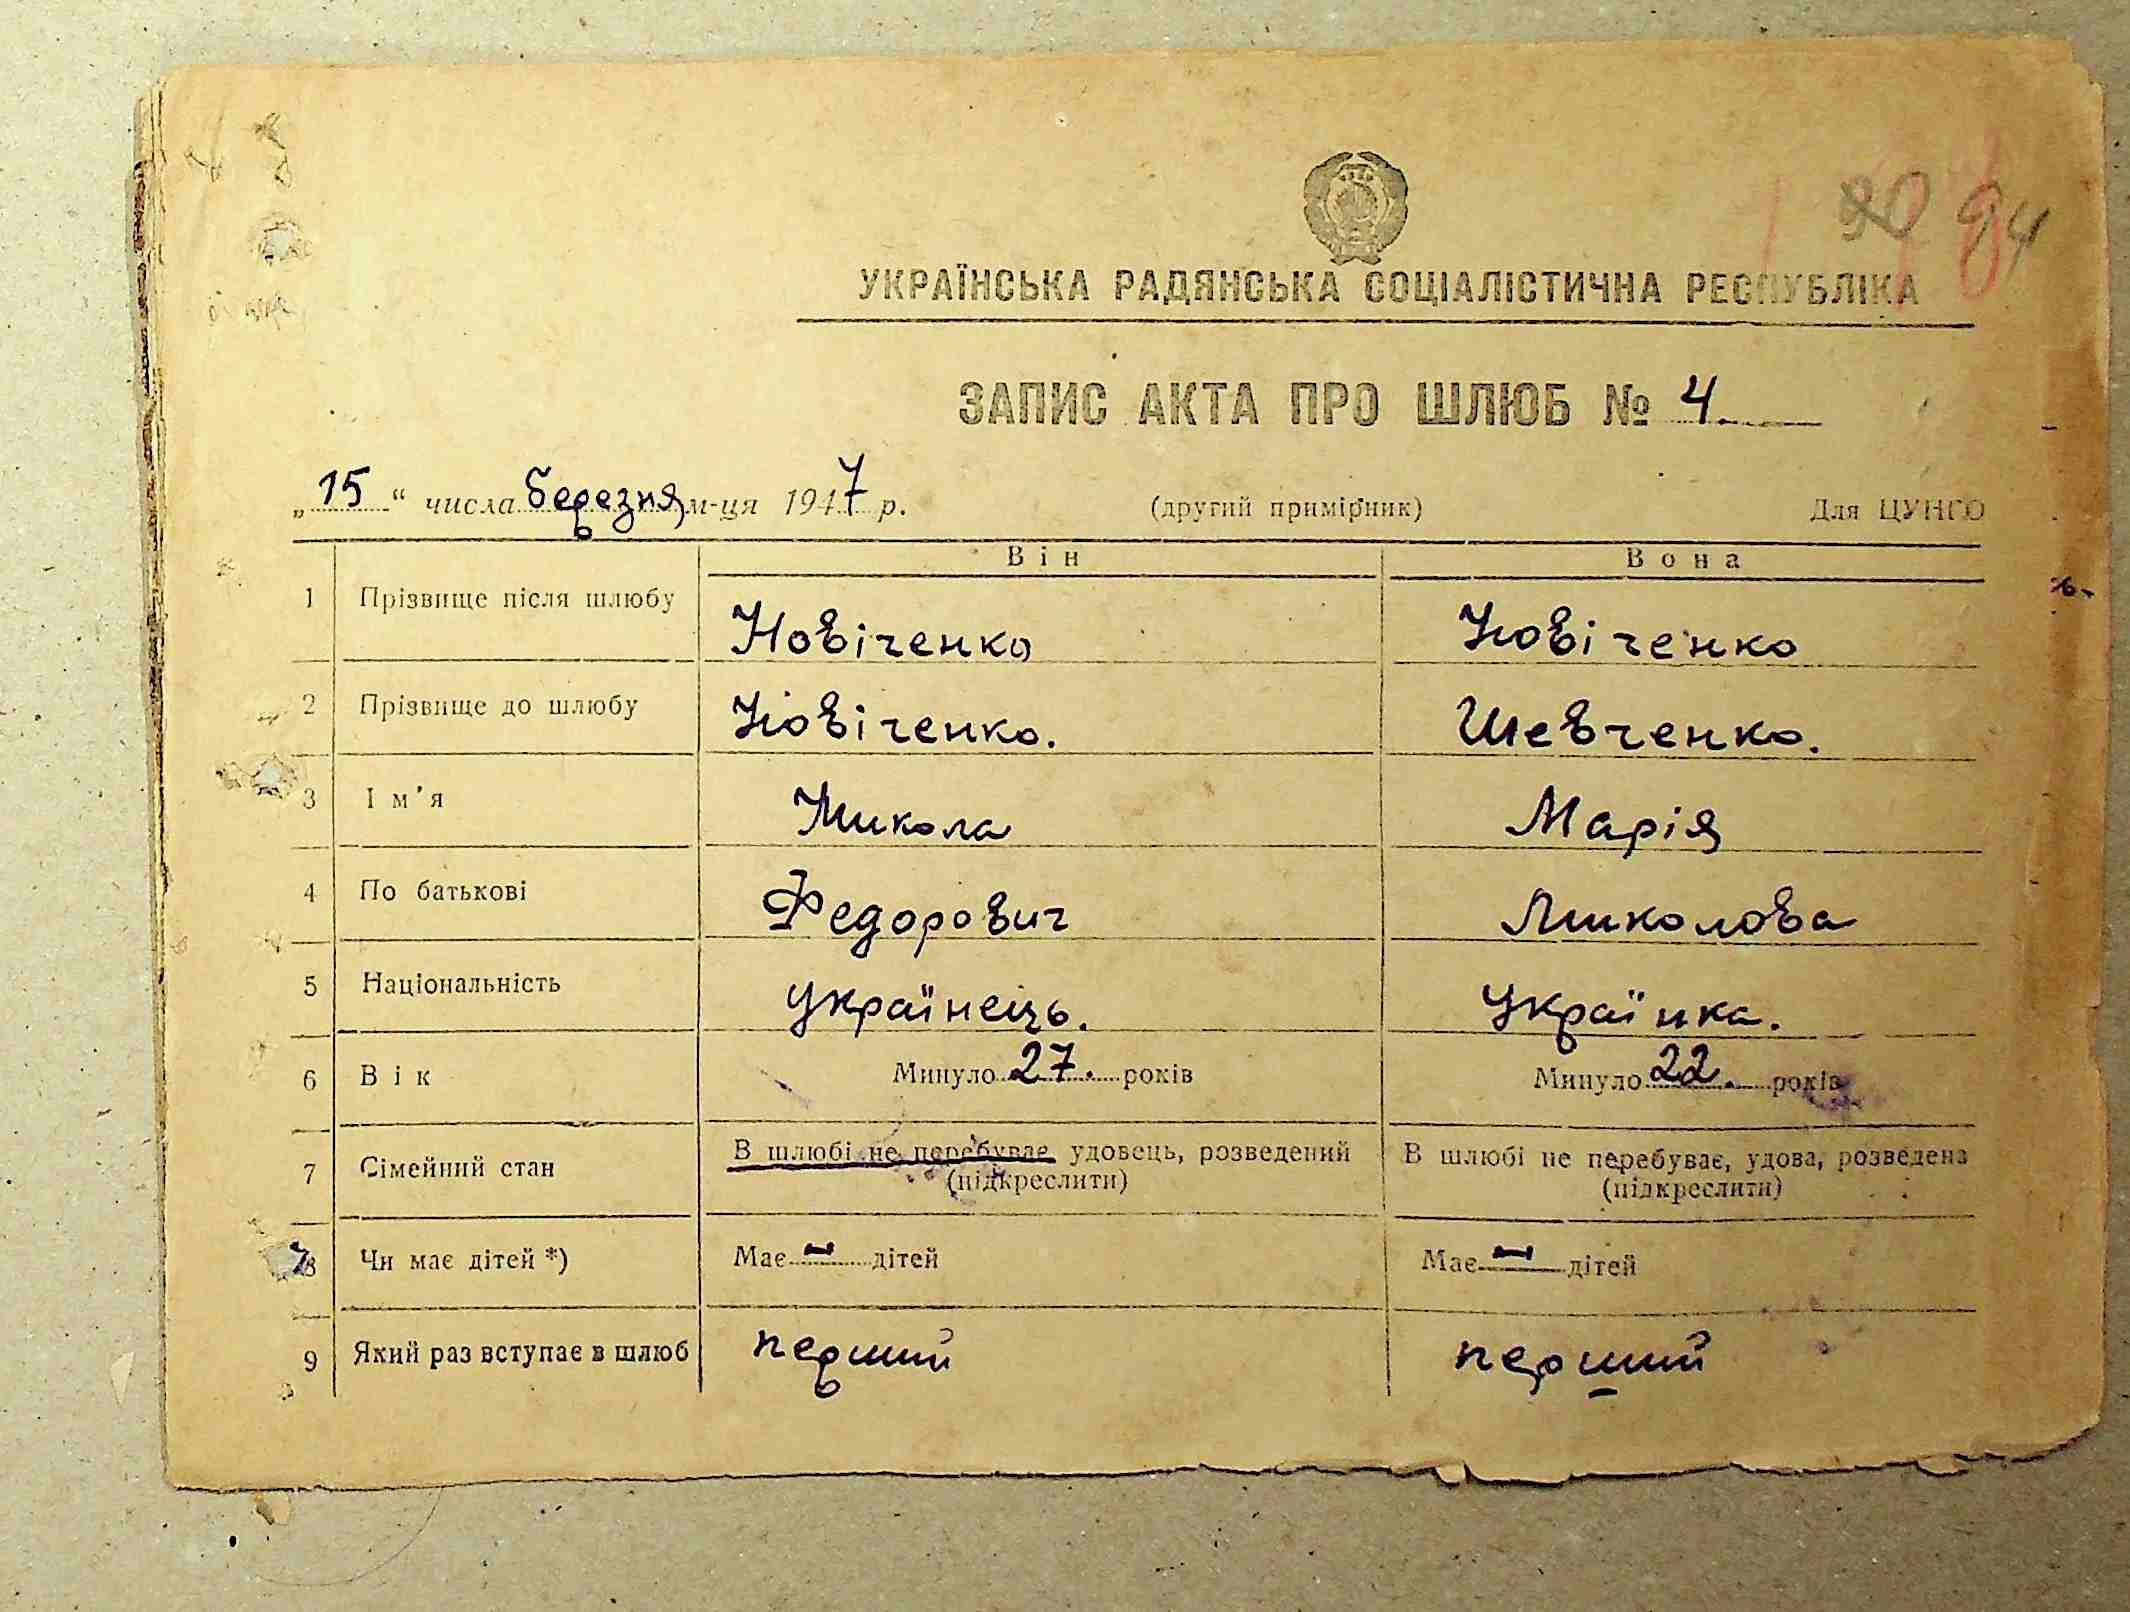 94
УКРАЇНСЬКА РАДЯНСЬКА СОЦІАЛІСТИЧНА РЕСПУБЛІКА
ЗАПИС АКТА ПРО ШЛЮБ № 4.
„15“ числа березня м-ця 1947 р. (другий примірник) Для ЦУНГО
Він Вона
1 Прізвище після шлюбу Новіченко Новіченко
2 Прізвище до шлюбу Новіченко. Шевченко.
3 Ім'я Микола Марія
4 По батькові Федорович Миколова
5 Національність українець. українка.
6 Вік Минуло 27. років Минуло 22. років
7 Сімейний стан В шлюбі не перебуває, удовець, розведений В шлюбі не перебуває, удова, розведена
(підкреслити) (підкреслити)
8 Чи має дітей *) Має — дітей Має — дітей
9 Який раз вступає в шлюб перший перший